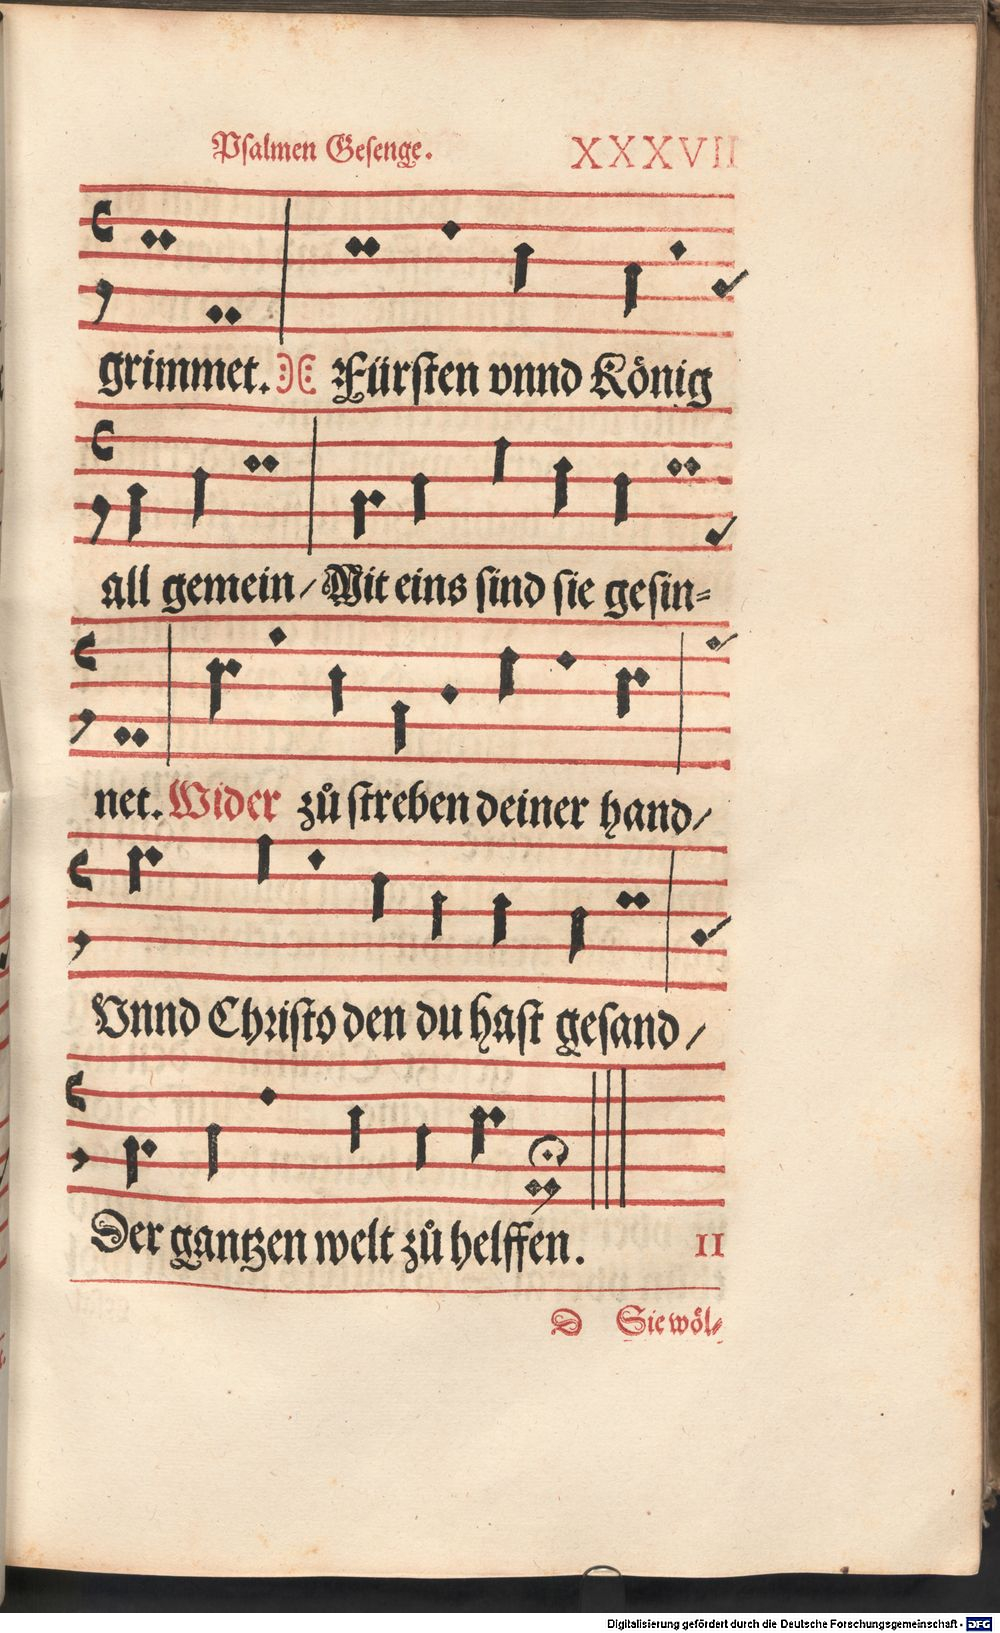 Psalmen Gesenge. XXXVII
grimmet. Fürsten vnnd König
all gemein/ Mit eins sind sie gesin⸗
net. Wider zů streben deiner hand/
Vnnd Christo den du hast gesand/
Der gantzen welt zů helffen. II
D Sie wöl⸗
Digitalisierung gefördert durch die Deutsche Forschungsgemeinschaft - DFG